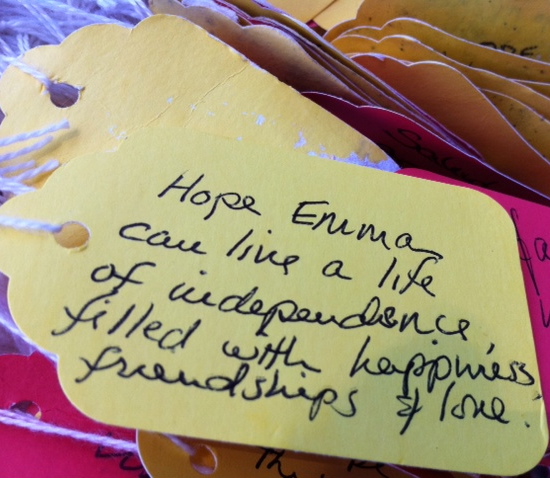 Hope Emma
can live a life
of independence,
filled with happiness,
friendships & love.